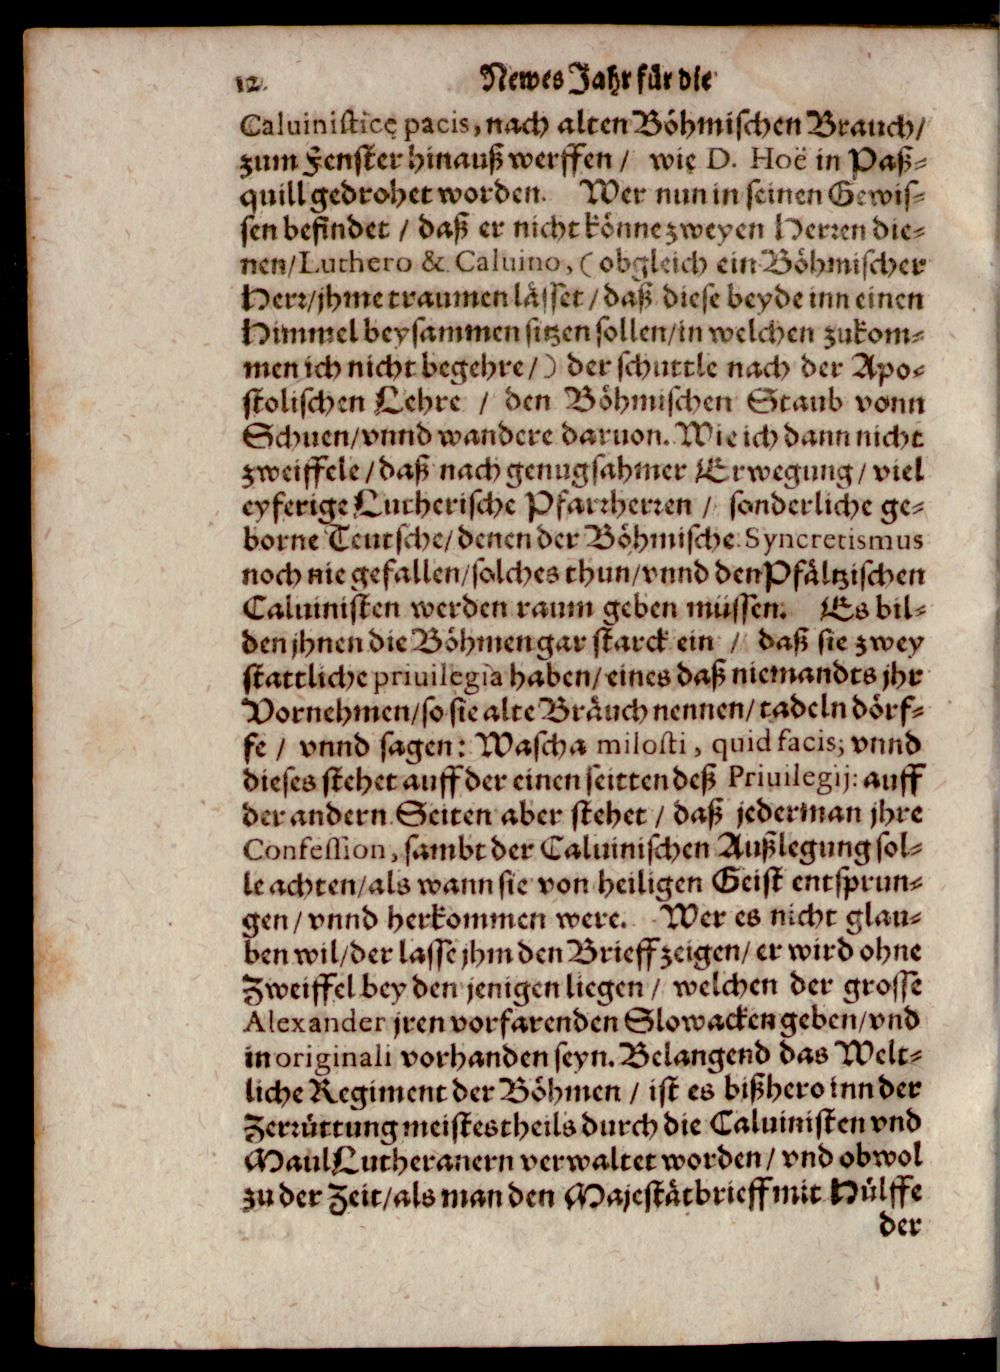 12. Newes Jahr für die
Caluinisticę pacis, nach alten Böhmischen Brauch/
zum Fenster hinauß werffen / wię D. Hoë in Paß-
quill gedrohet worden. Wer nun in seinen Gewis-
sen befindet / daß er nicht könne zweyen Herren die-
nen/Luthero & Caluino, (obgleich ein Böhmischer
Herr/jhme traumen lässet/daß diese beyde inn einen
Himmel beysammen sitzen sollen/in welchen zukom-
men ich nicht begehre/) der schuttle nach der Apo-
stolischen Lehre / den Böhmischen Staub vonn
Schuen/vnnd wandere daruon. Wie ich dann nicht
zweiffele/daß nach genugsahmer Erwegung/viel
eyferige Lutherische Pfarrherren / sonderliche ge-
borne Teutsche/denen der Böhmische Syncretismus
noch nie gefallen/solches thun/vnnd den Pfältzischen
Caluinisten werden raum geben müssen. Es bil-
den jhnen die Böhmen gar starck ein / daß sie zwey
stattliche priuilegia haben/eines daß niemandts jhr
Vornehmen/so sie alte Bräuch nennen/tadeln dörf-
fe / vnnd sagen: Wascha milosti, quid facis; vnnd
dieses stehet auff der einen seitten deß Priuilegij: auff
der andern Seiten aber stehet / daß jederman jhre
Confession, sambt der Caluinischen Außlegung sol-
le achten/als wann sie von heiligen Geist entsprun-
gen/vnnd herkommen were. Wer es nicht glau-
ben wil/der lasse jhm den Brieff zeigen/er wird ohne
Zweiffel bey den jenigen liegen / welchen der grosse
Alexander jren vorfarenden Slowacken geben/vnd
in originali vorhanden seyn. Belangend das Welt-
liche Regiment der Böhmen / ist es bißhero inn der
Zerrüttung meistestheils durch die Caluinisten vnd
Maul Lutheranern verwaltet worden/vnd obwol
zu der Zeit/als man den Majestätbrieff mit Hülffe
der